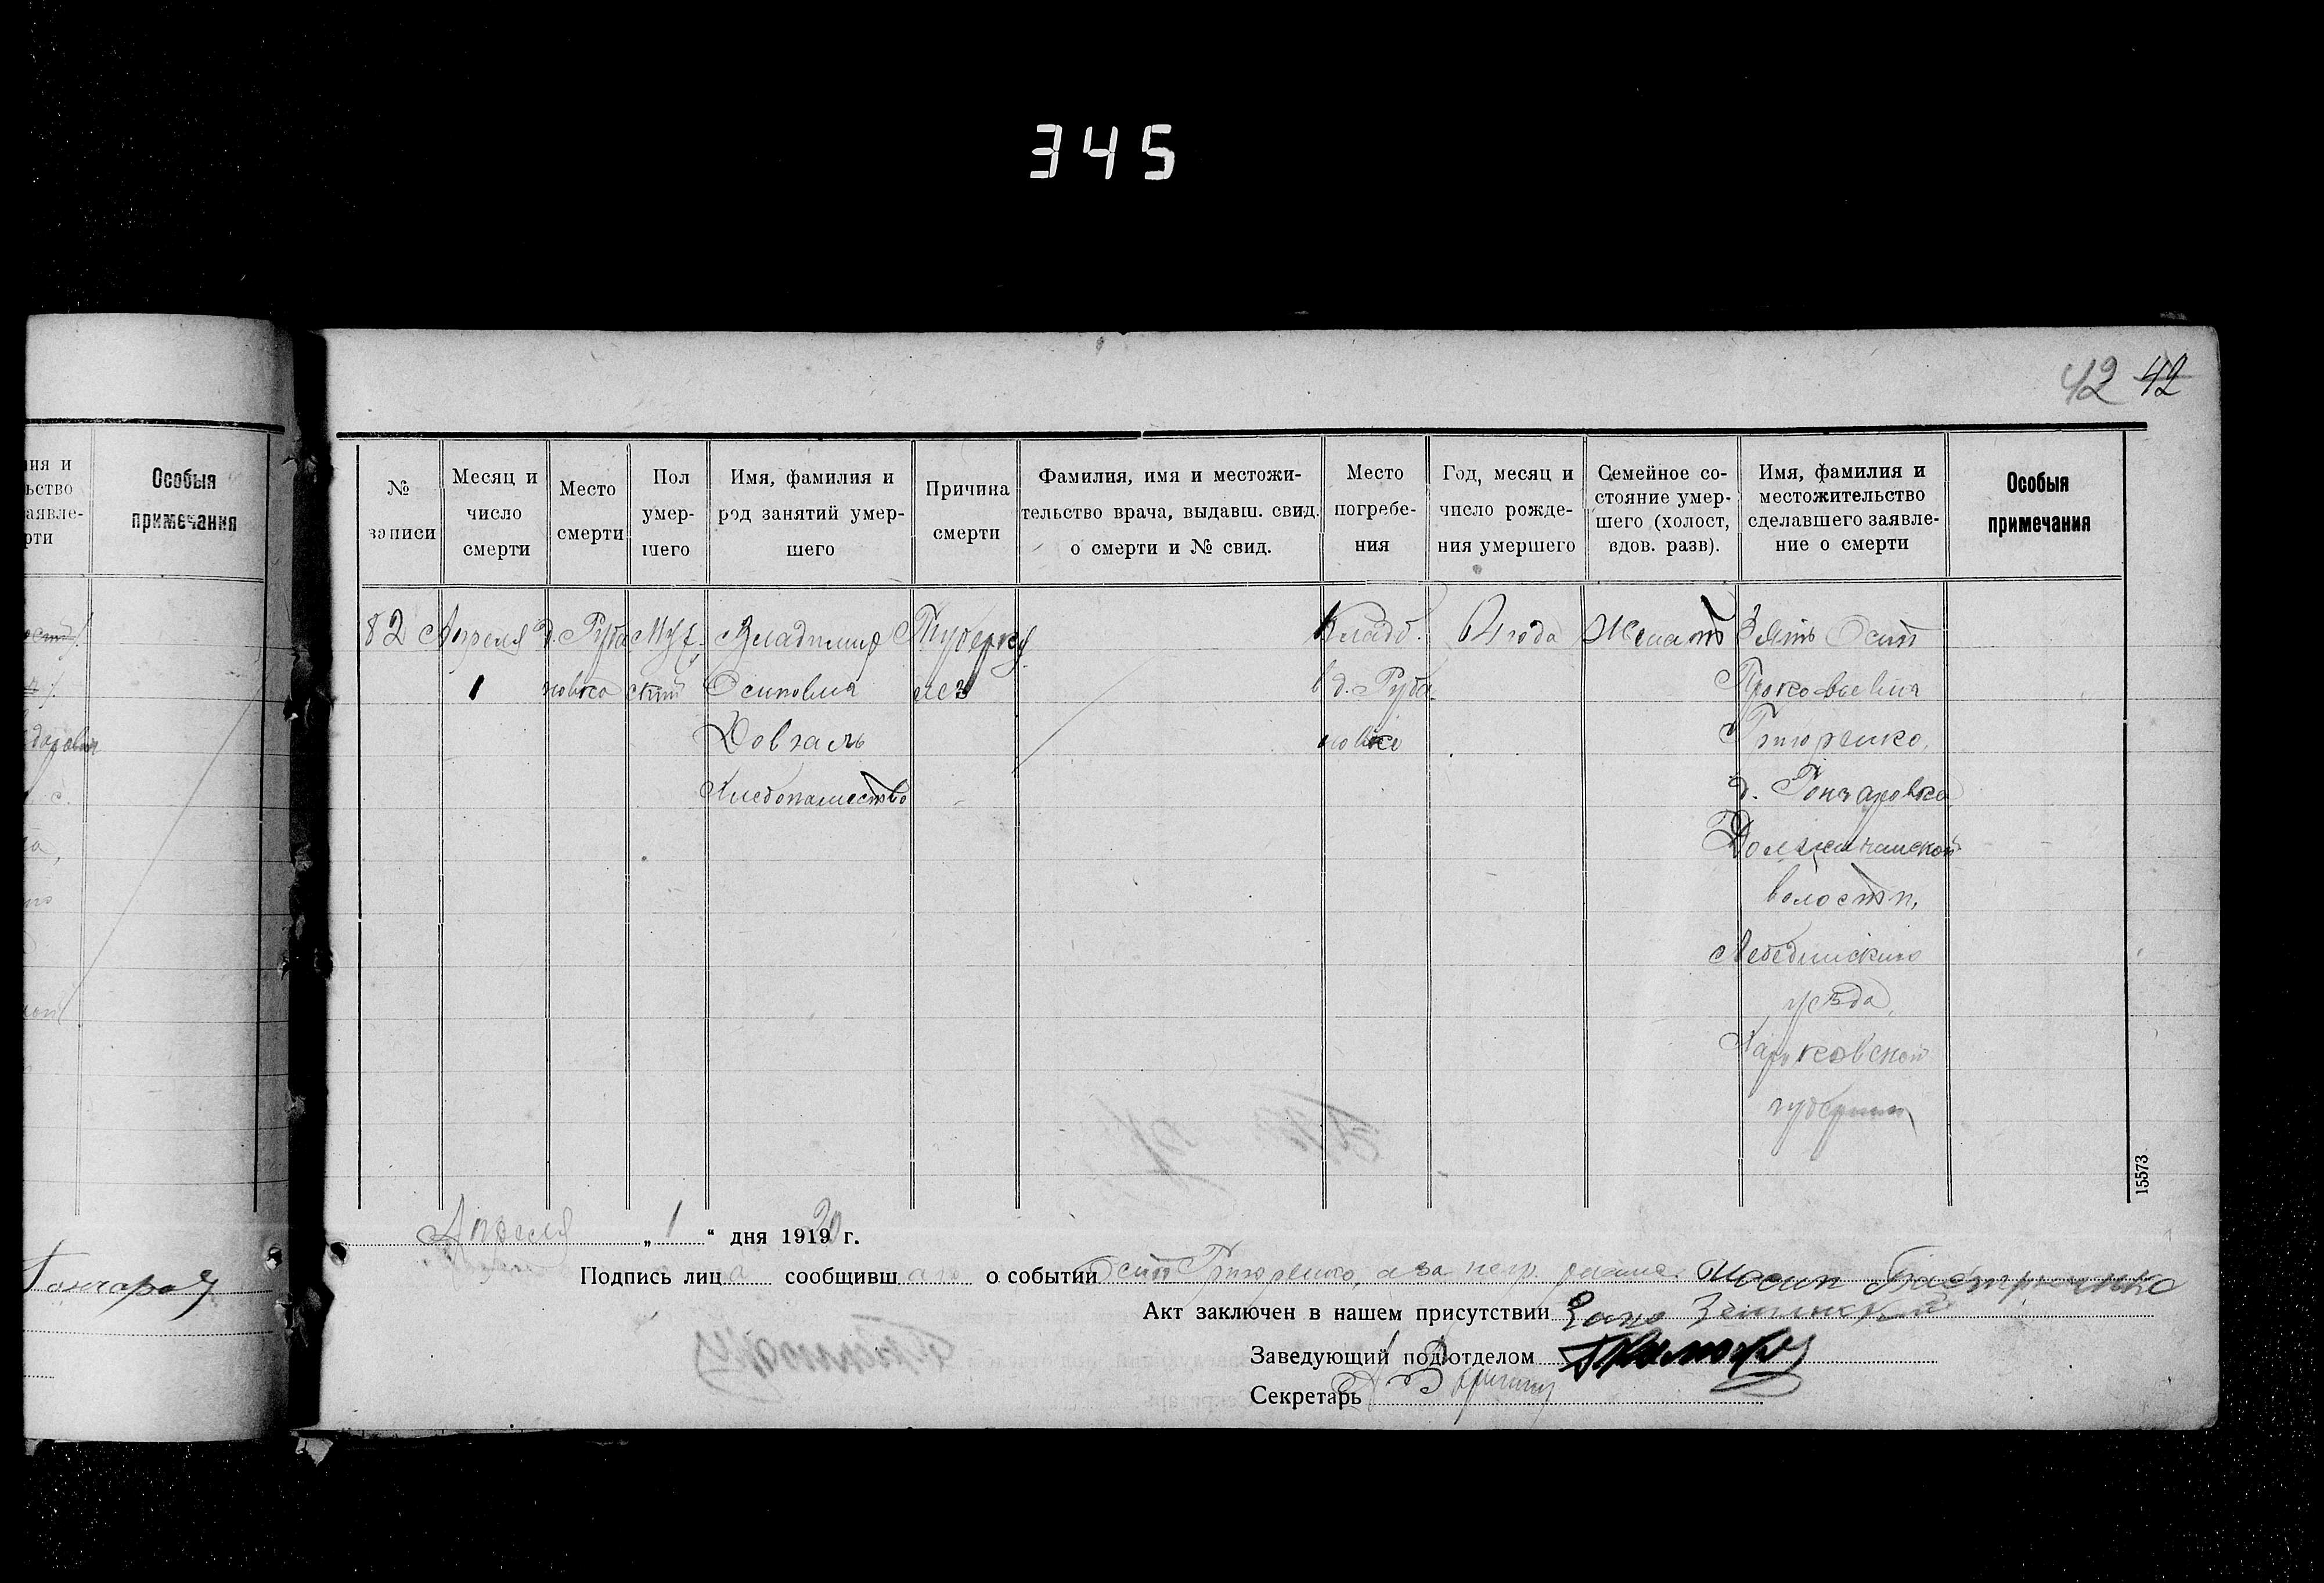 345
42 42
ния и
ьство
заявле-
рти
Особыя
примечания
№
записи
Месяц и
число
смерти
Место
смерти
Пол
умер-
шего
Имя, фамилия и
род занятий умер-
шего
Причина
смерти
Фамилия, имя и местожи-
тельство врача, выдавш. свид.
о смерти и № свид.
Место
погребе-
ния
Год, месяц и
число рожде-
ния умершего
Семейное со-
стояние умер-
шего (холост,
вдов. разв).
Имя, фамилия и
местожительство
сделавшего заявле-
ние о смерти
Особыя
примечания
82
Апреля
1
д. Руба
новка
Муж
ской
Владимир
Осипович
Довгаль
Хлебопашество
Туберку
лез
Кладб.
в д. Руба
новке
64 года
Женат
Зять Осип
Прокофьевич
Григоренко,
д. Гончаровка
Должанской
волости,
Лебединского
уезда,
Харьковской
губернии
15573
Апреля „ 1 “ дня 1919 20 г.
Подпись лица сообщившаго о событии Осип Григоренко, а за негр.
Акт заключен в нашем присутствии
Заведующий под'отделом
Секретарь
Гончаров